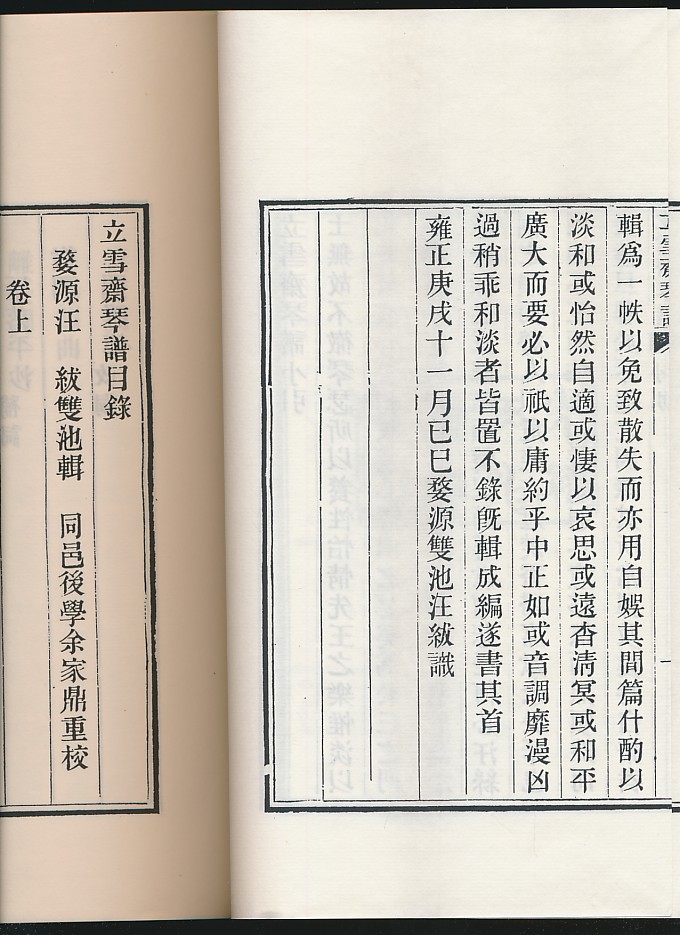 立雪齋琴譜
輯爲一帙以免致散失而亦用自娛其間篇什酌以
淡和或怡然自適或悽以哀思或遠杳淸冥或和平
廣大而要必以祇以庸約乎中正如或音調靡漫凶
過稍乖和淡者皆置不錄旣輯成編遂書其首
雍正庚戌十一月己巳婺源雙池汪紱識
立雪齋琴譜目錄
婺源汪 紱雙池輯 同邑後學余家鼎重校
卷上